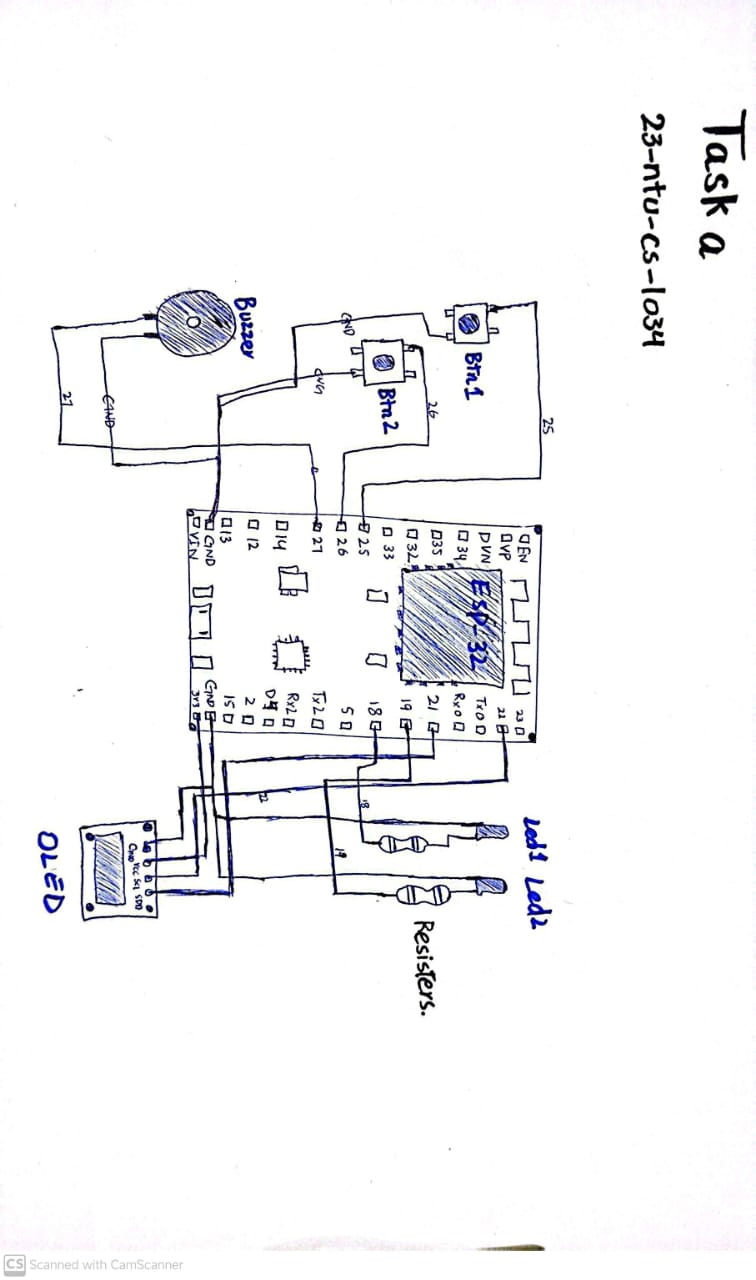 Task a
23-ntu-cs-1034
Btn1
Btn2
Buzzer
25
26
GND
GND
27
GND
EN
VP
VN
34
35
32
33
25
26
27
14
12
13
GND
VIN
ESP-32
23
22
Tx0
Rx0
21
19
18
5
Tx2
Rx2
D4
2
15
GND
3V3
22
18
19
Led1 Led2
Resisters.
GND VCC SCL SDD
OLED
CS Scanned with CamScanner